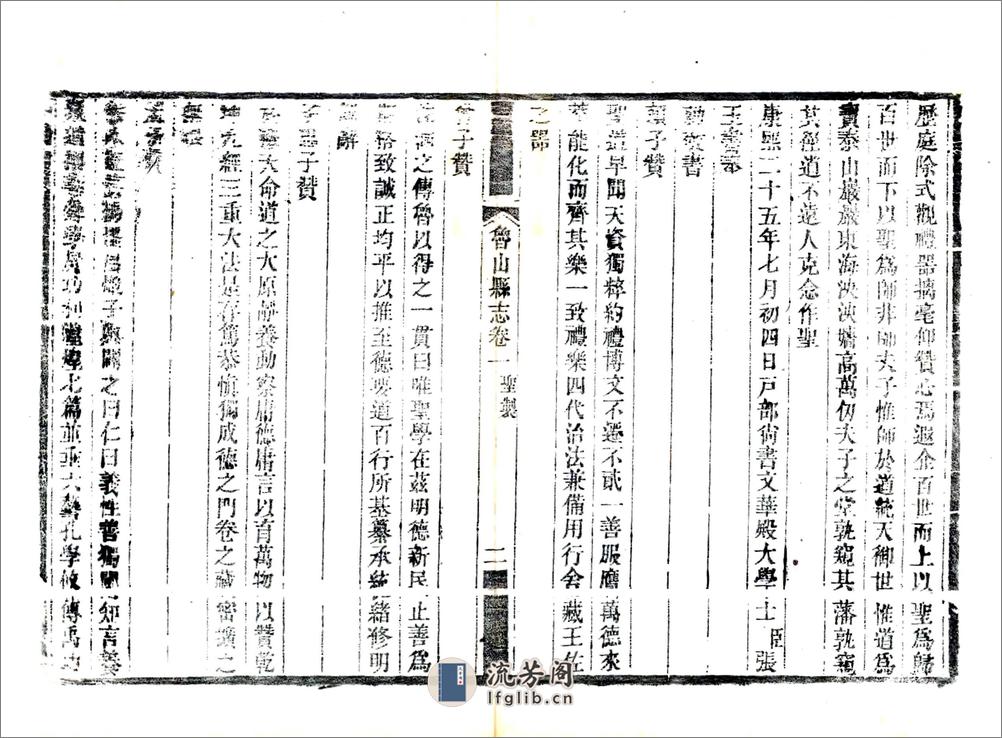 歷庭除式觀禮器摛毫仰贊心焉遐企百世而上以聖爲歸
百世而下以聖爲師非師夫子惟師於道統天御世惟道爲
寶泰山巖巖東海泱泱墻高萬仞夫子之堂孰窺其藩孰窺
其徑道不遠人克念作聖
康熙二十五年七月初四日戶部尙書文華殿大學士臣張
玉書奉
勅敬書
顏子贊
聖道早聞天資獨粹約禮博文不遷不貳一善服膺萬德來
萃能化而齊其樂一致禮樂四代治法兼備用行舍藏王佐
之器
曾子贊
之傳魯以得之一貫曰唯聖學在茲明德新民止善爲
格致誠正均平以推至德要道百行所基纂承統緒修明
辭
子贊
大命道之大原靜養動察庸德庸言以育萬物以贊乾
九經三重大法是存篤恭愼獨成德之門卷之藏密擴之
子闢之曰仁曰義性善獨闡知言養
道七篇並垂六孔學攸傳禹功
魯山縣志卷一
聖製
二
流芳阁
lfglib.cn